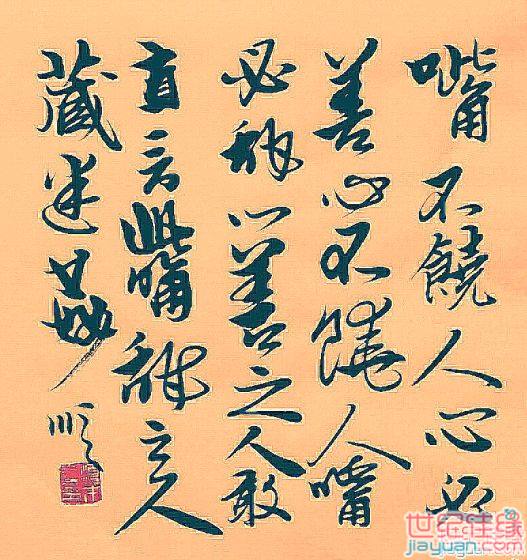 嘴不饒人心必
善心不饒人嘴
必甜心善之人敢
直言嘴甜之人
藏迷
世纪佳缘
jiayuan.com